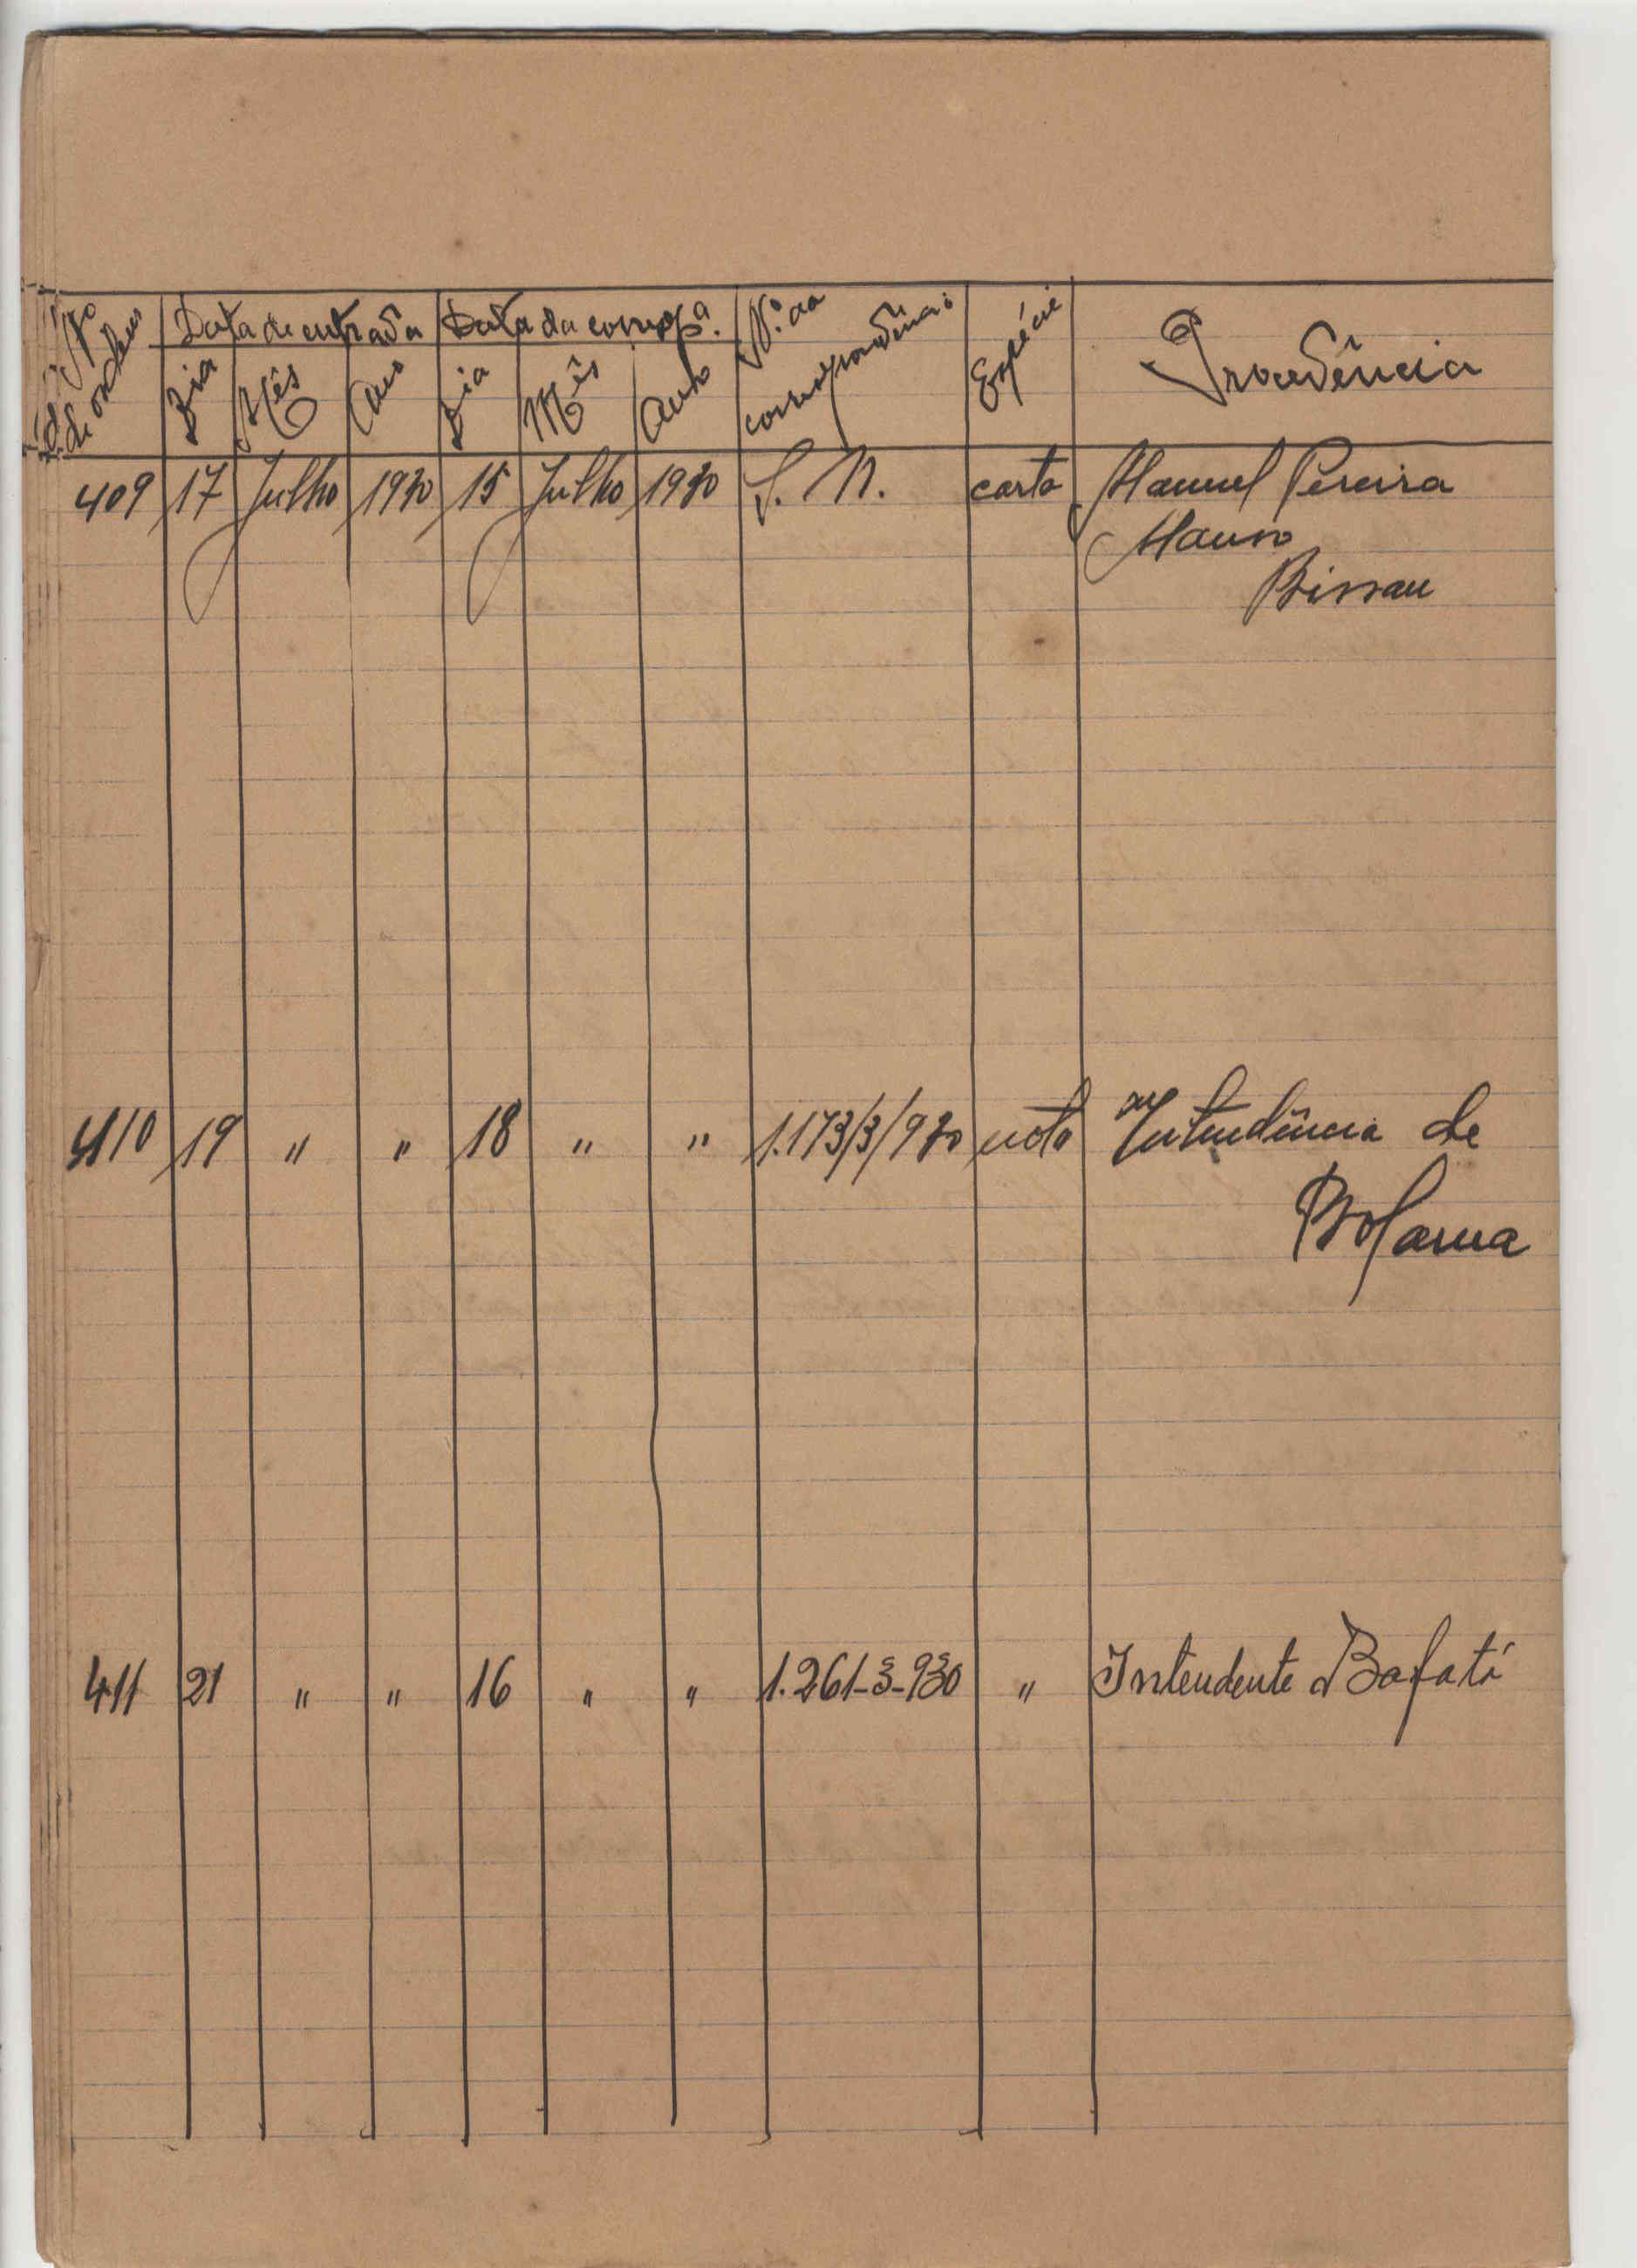 Nº de ordem Data de entrada Data da corresp.ª Nº da correspondência Espécie Procedência
Dia Mês Ano Dia Mês Ano
409 17 Julho 1930 15 Julho 1930 S. N. carta Manuel Pereira
Bissau
410 19 " " 18 " " 1.173/3/930 nota Intendência de
Bolama
411 21 " " 16 " " 1.261-3-930 " Intendente Bafatá